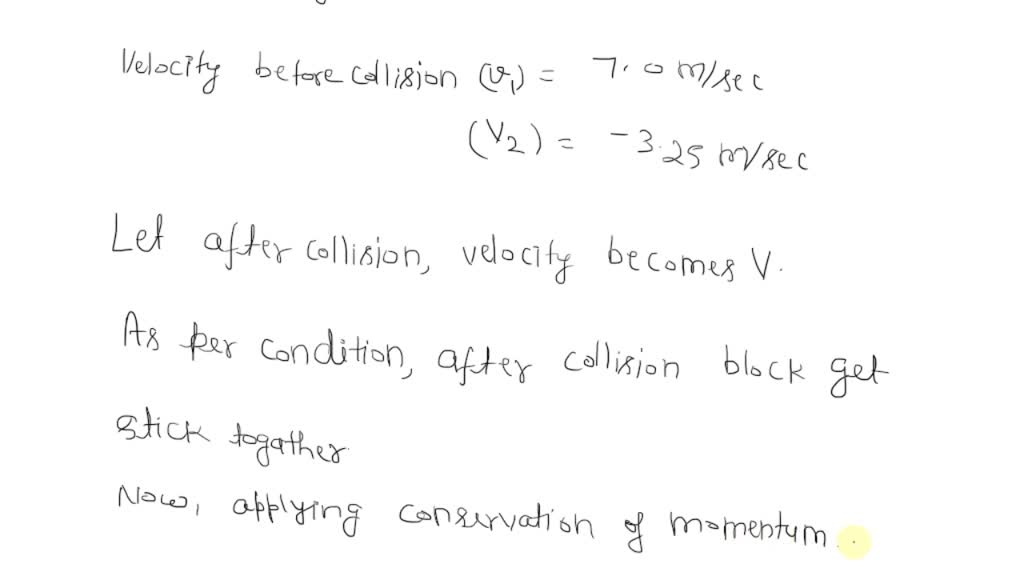 Velocity before collision (v₁) = 7.0 m/sec
(V₂) = -3.25 m/sec
Let after collision, velocity becomes V.
As per condition, after collision block get
stick togather.
Now, applying conservation of momentum.